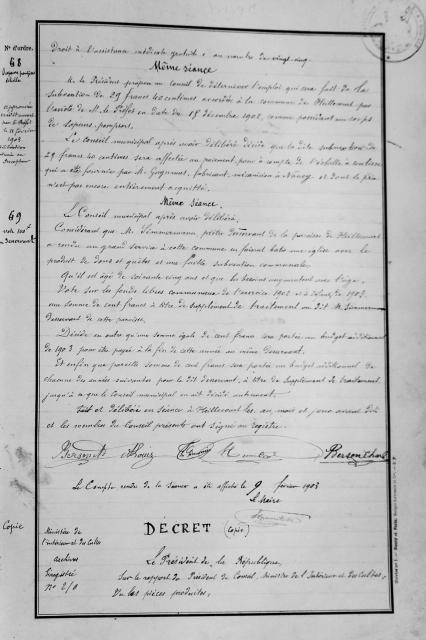 N° d'ordre.
Droit à l'assistance médicale gratuite : au nombre de vingt-cinq.
68
Même séance
M. le Président propose au Conseil de déterminer l'emploi qui sera fait de la
subvention de 29 francs 40 centimes accordée à la commune de Heillecourt par
l'arrêté de M. le Préfet en date du 15 décembre 1902, comme possédant un corps
de sapeurs pompiers.
Le Conseil municipal après avoir délibéré décide que la dite subvention de
29 francs 40 centimes sera affectée au paiement, pour à compte de l'échelle à
qui a été fournie par M. Guyennot, fabricant, mécanicien à Nancy et dont le prix
n'est pas encore entièrement acquitté.
approuvé
69
vote 100f
Desservant
Même séance.
Le Conseil municipal après avoir délibéré,
Considérant que M. Simmermann, prêtre desservant de la paroisse de Heillecourt
a rendu un grand service à cette commune en faisant bâtir une église avec le
produit de dons et quêtes et une faible subvention communale.
Qu'il est âgé de soixante cinq ans et que les besoins augmentent avec l'âge.
Vote sur les fonds libres communaux de l'exercice 1902
une somme de cent francs à titre de supplément de traitement au dit M. Simmermann
desservant de cette paroisse.
Décide en outre qu'une somme égale de cent francs sera portée au budget additionnel
de 1903 pour être payée à la fin de cette année au même desservant.
Et enfin que pareille somme de cent francs sera portée au budget additionnel de
chacune des années suivantes pour le dit desservant, à titre de supplément de traitement
jusqu'à ce que le Conseil municipal en ait décidé autrement.
Fait et délibéré en séance à Heillecourt les an, mois et jour avant dits
et les membres du Conseil présents ont signé au registre.
Le Compte rendu de la séance a été affiché le 9 février 1903
Le Maire
Copie
Ministère de
l'intérieur et des Cultes
archives
Enregistré
N° 2/8
DÉCRET (Copie)
Le Président de la République,
Sur le rapport du Président du Conseil, Ministre de l'Intérieur et des Cultes,
Vu les pièces produites,